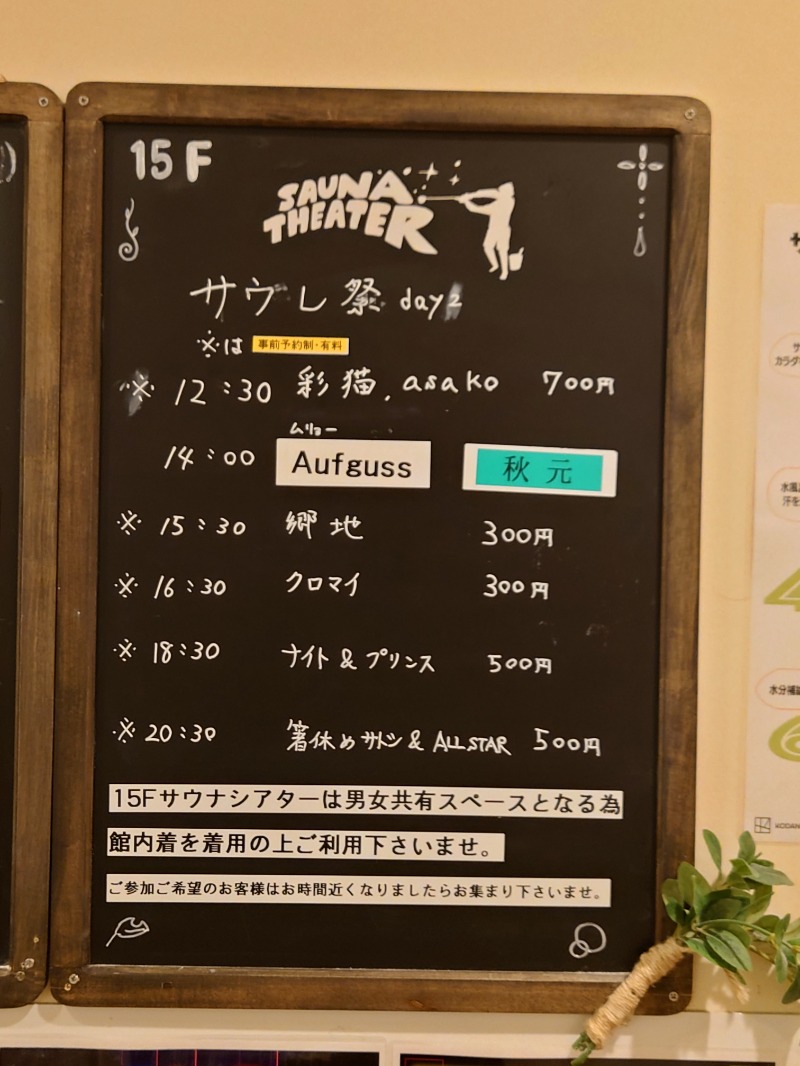 15F
SAUNA
THEATER
サウレ祭 day2
※は 事前予約制・有料
※ 12:30 彩猫, asako 700円
ムリョー
14:00 Aufguss 秋元
※ 15:30 郷地 300円
※ 16:30 クロマイ 300円
※ 18:30 ナイト & プリンス 500円
※ 20:30 箸休めサトシ & ALLSTAR 500円
15Fサウナシアターは男女共有スペースとなる為
館内着を着用の上ご利用下さいませ。
ご参加ご希望のお客様はお時間近くなりましたらお集まり下さいませ。
サ
カラダ
水風
汗を
4
水分補
6
KODAN